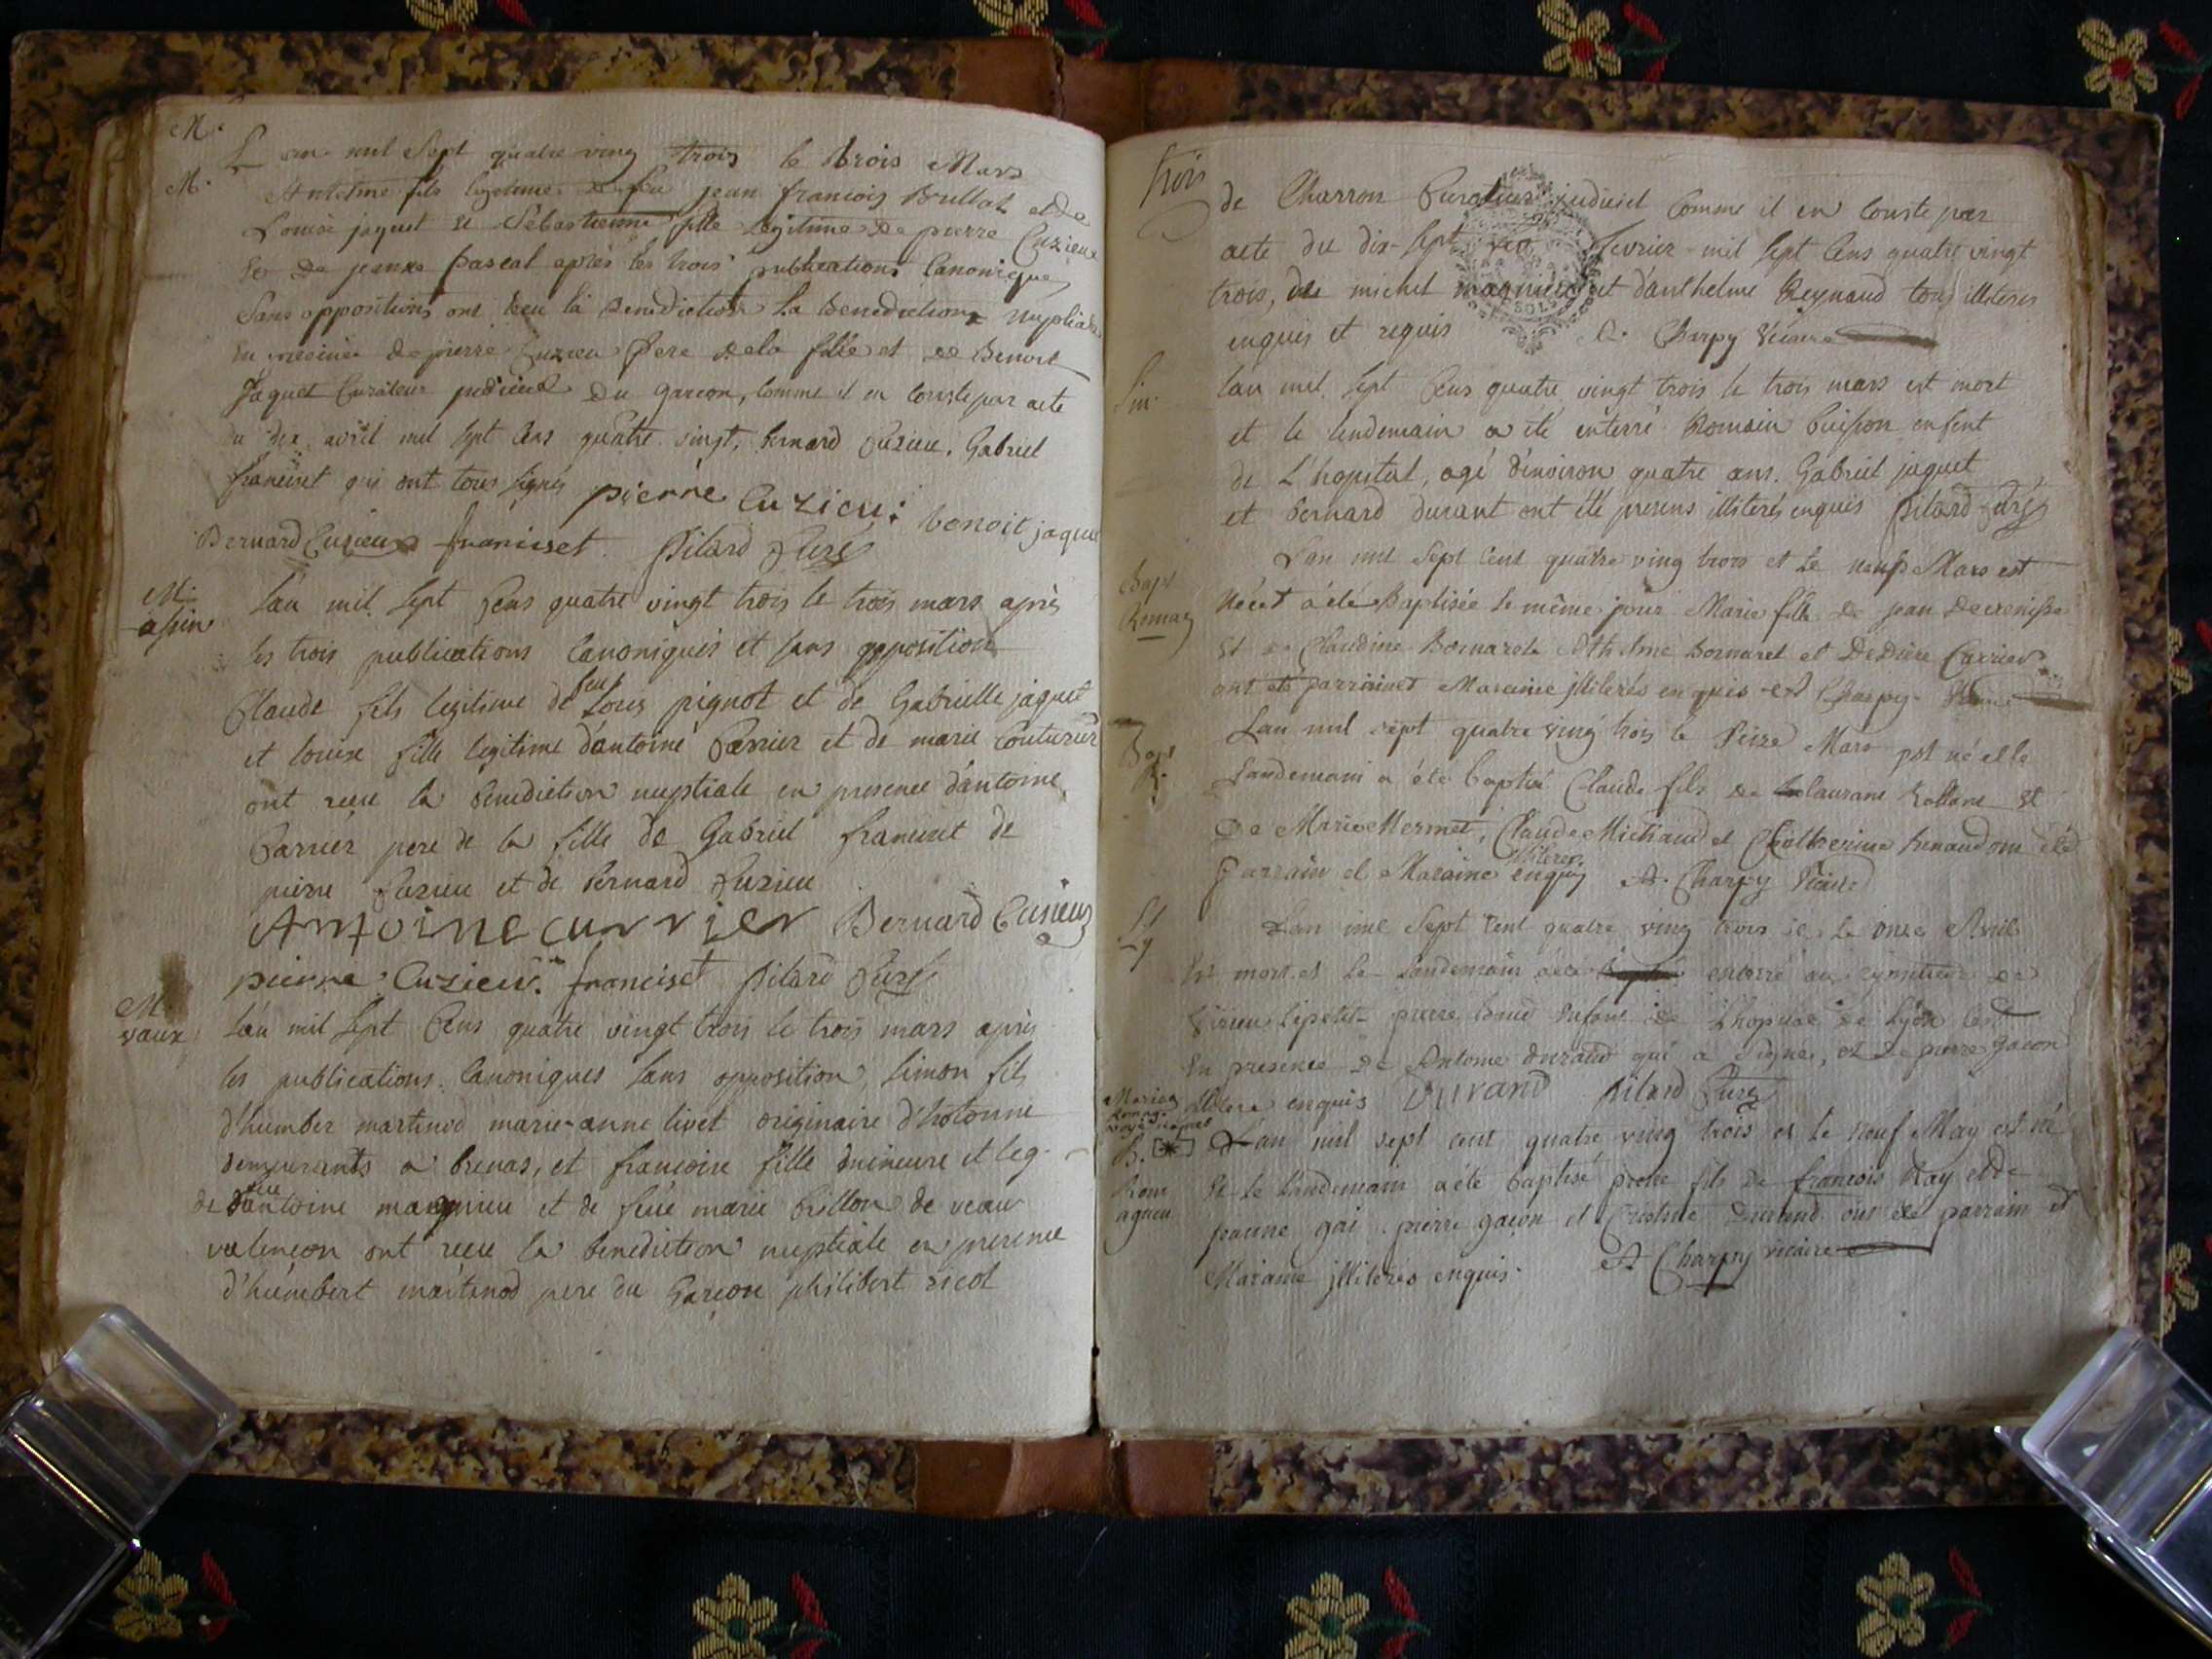 M.
L'an mil Sept quatre ving trois le trois Mars
M.
Antelme fils legitime de feu jean francois Brullat et de
Louise jaquet et Sebastienne fille legitime de pierre Cuzieux
et de jeanne pascal après les trois publications Canonique
Sans oppositions ont reçu la Benediction la benediction nuptiale
en presence de pierre Cuzieu Pere de la fille et de Benoit
Jaquet Curateur judiciel du garcon, comme il en conste par acte
du dix avril mil sept cens quatre vingt, bernard Cuzieu, Gabriel
franciset qui ont tous signés pierre Cuzieu: benoit jaquet
Bernard Cuzieux franciset. Pilard Curé
M.
assin
l'an mil sept cens quatre vingt trois le trois mars après
les trois publications canoniques et sans opposition
Claude fils legitime de feu Louis pignot et de Gabrielle jaquet
et louise fille legitime d'antoine Carrier et de marie couturier
ont receu la benediction nuptiale en presence d'antoine
Carrier pere de la fille de Gabriel franciset de
pierre Cuzieu et de bernard Cuzieu
Antoine currier Bernard Cusieux
pierre Cuzieu. franciset Pilard Curé
M.
vaux
l'an mil sept cens quatre vingt trois le trois mars après
les publications canoniques sans opposition, simon fils
d'humber martinod marie-anne livet originaire d'hotonne
demeurants a brenas, et francoise fille mineure et leg.
de feu d'antoine magnieu et de feüe marie brillon de veaux
valençon ont receu la benediction nuptiale en presence
d'humbert martinod pere du Garçon philibert ricol
trois
de Charron Curateur judiciel comme il en conste par
acte du dix-sept fevrier mil sept cens quatre vingt
trois, de michel magnieu et d'anthelme Reynaud tous illiteres
enquis et requis A. Charpy vicaire
Sin.
l'an mil sept cens quatre vingt trois le trois mars est mort
et le lendemain a été enterré Romain buisson enfent
de L'hopital, agé d'environ quatre ans. Gabriel jaquet
et bernard durant ont été presens illiterés enquis Pilard Curé
Bapt
Romag
L'an mil sept cent quatre ving trois et le neuf Mars est
née et a été Baptisée le même jour Marie fille de jean
et de Claudine Bornarel Athelme bornarel et Carrier
ont été parrain et Maraine illiterés enquis A Charpy
Bapt
R.
L'an mil sept quatre ving trois le Seize Mars est né et le
landemain a été baptisé Claude fils de laurant et
de Marie Mermet, Claude Michaud et Chatherine Renaud ont été
Parrain et Maraine illiteres enquis A. Charpy Vicaire
L'an mil sept cent quatre ving trois et le onze Avril
est mort et le landemain a été enterré au cymitiere de
Virieu lepetit pierre enfant de l'hopital de Lyon
en presence de Antoine durand qui a signé, et de pierre gacon
illitere enquis DURAND Pilard Curé
B.
Rom
agneu
L'an mil sept cent quatre ving trois et le neuf May est né
et le landemain a été baptisé pierre fils de francois Ray et de
gai pierre gacon et Cristine Durand ont été parrain et
Maraine illiteres enquis. A Charpy vicaire